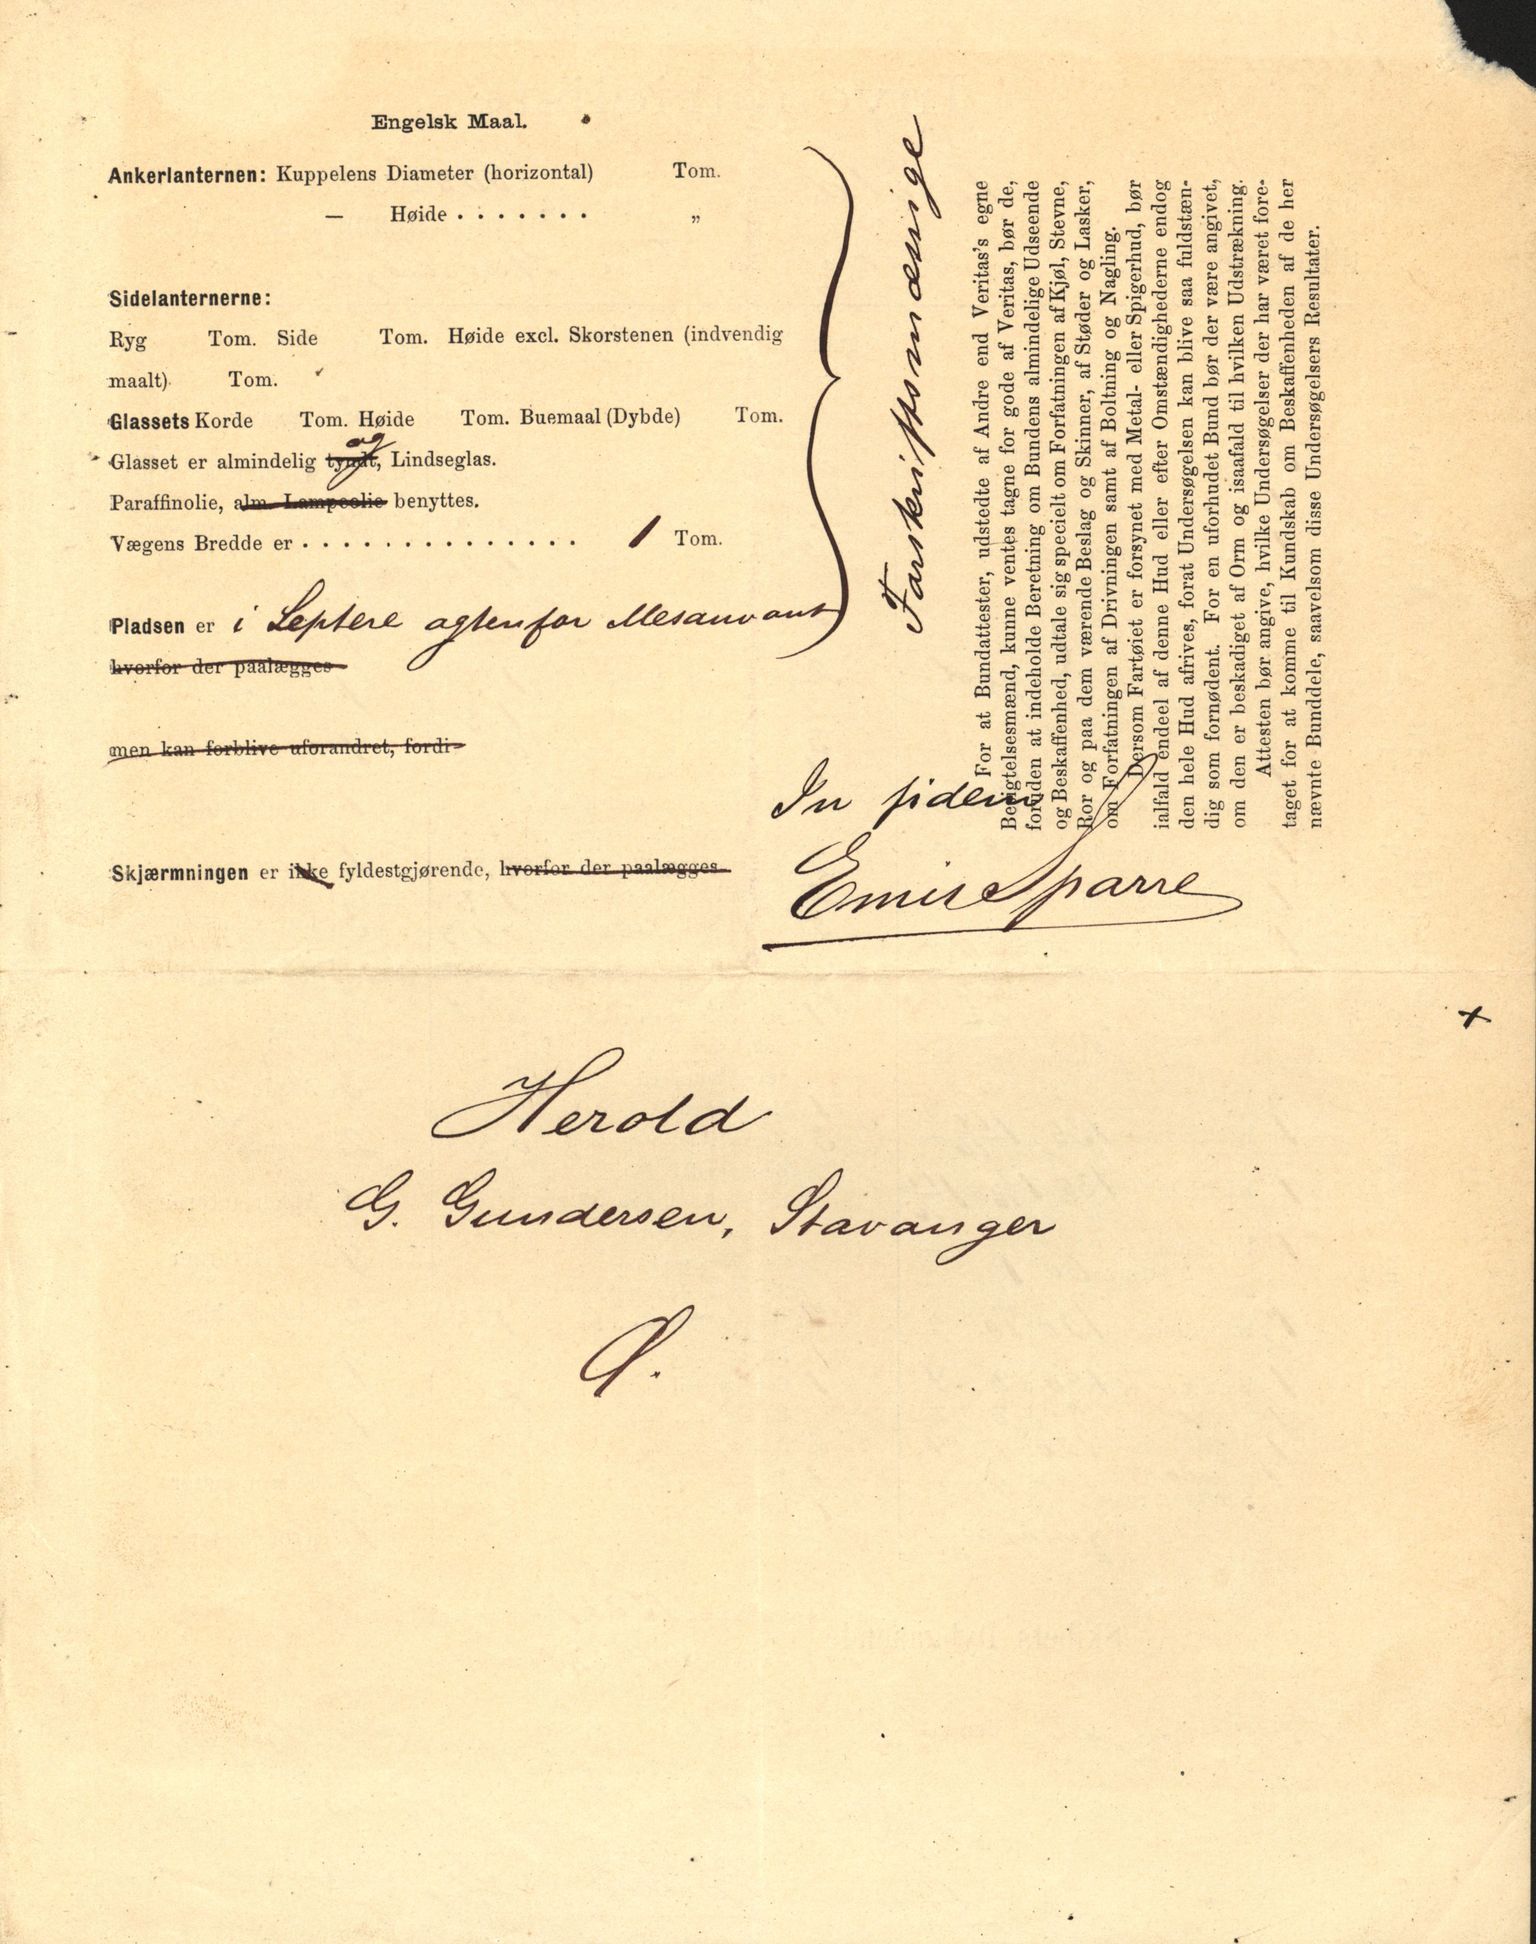 Engelsk Maal.
Ankerlanternen: Kuppelens Diameter (horizontal) Tom.
— Høide . . . . . . . „
Sidelanternerne:
Ryg Tom. Side Tom. Høide excl. Skorstenen (indvendig
maalt). Tom.
Glassets Korde Tom. Høide Tom. Buemaal (Dybde) Tom.
og
Glasset er almindelig tyndt, Lindseglas.
Paraffinolie, alm. Lampeolie benyttes.
Vægens Bredde er . . . . . . . . . . . . . . 1 Tom.
Pladsen er i Septere agtenfor Mesanvant
hvorfor der paalægges
men kan forblive uforandret, fordi
Skjærmningen er ikke fyldestgjørende, hvorfor der paalægges
Forskriftsmæssige
For at Bundattester, udstedte af Andre end Veritas's egne
Besigtelsesmænd, kunne ventes tagne for gode af Veritas, bør de,
foruden at indeholde Beretning om Bundens almindelige Udseende
og Beskaffenhed, udtale sig specielt om Forfatningen af Kjøl, Stevne,
Ror og paa dem værende Beslag og Skinner, af Støder og Lasker,
om Forfatningen af Drivningen samt af Boltning og Nagling.
Dersom Fartøiet er forsynet med Metal- eller Spigerhud, bør
ialfald endeel af denne Hud eller efter Omstændighederne endog
den hele Hud afrives, forat Undersøgelsen kan blive saa fuldstæn-
dig som fornødent. For en uforhudet Bund bør der være angivet,
om den er beskadiget af Orm og isaafald til hvilken Udstrækning.
Attesten bør angive, hvilke Undersøgelser der har været fore-
taget for at komme til Kundskab om Beskaffenheden af de her
nævnte Bunddele, saavelsom disse Undersøgelsers Resultater.
In fidem
Emil Sparre
+
Herold
G. Gundersen, Stavanger
Ø.